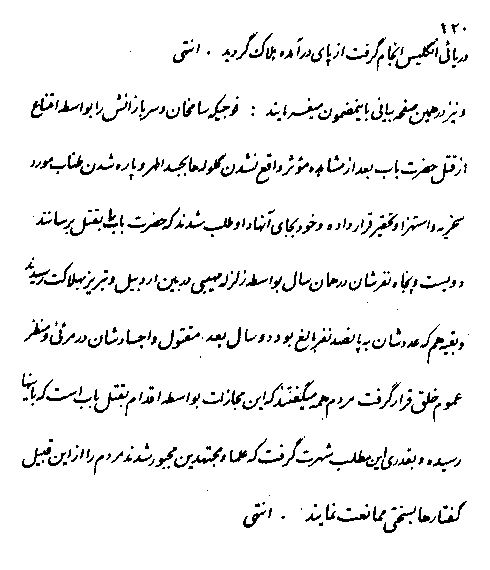 ۲۲۰
دریائی انگلیس انجام گرفت از پای درآمده هلاک گردید . انتهی
و نیز در همین صفحه بیانی باینمضمون میفرمایند : فوجیکه سامخان و سربازانش را بواسطه اقناع
از قتل حضرت باب بعد از مشاهده مؤثر واقع نشدن گلوله‌ها بجسد اطهر و پاره شدن طناب مورد
سخریه و استهزا و تحقیر قرار داده و خود بجای آنها داوطلب شدند که حضرت باب را بقتل برسانند
دویست و پنجاه نفرشان در همان سال بواسطه زلزله مهیبی در بین اردبیل و تبریز بهلاکت رسیدند
و بقیه هم که عده‌شان به پانصد نفر بالغ بود دو سال بعد مقتول و اجسادشان در مرئی و منظر
عموم خلق قرار گرفت مردم همه میگفتند که این مجازات بواسطه اقدام بقتل باب است که باینها
رسیده و بقدری این مطلب شهرت گرفت که علما و مجتهدین مجبور شدند مردم را از این قبیل
گفتارها بسختی ممانعت نمایند . انتهی